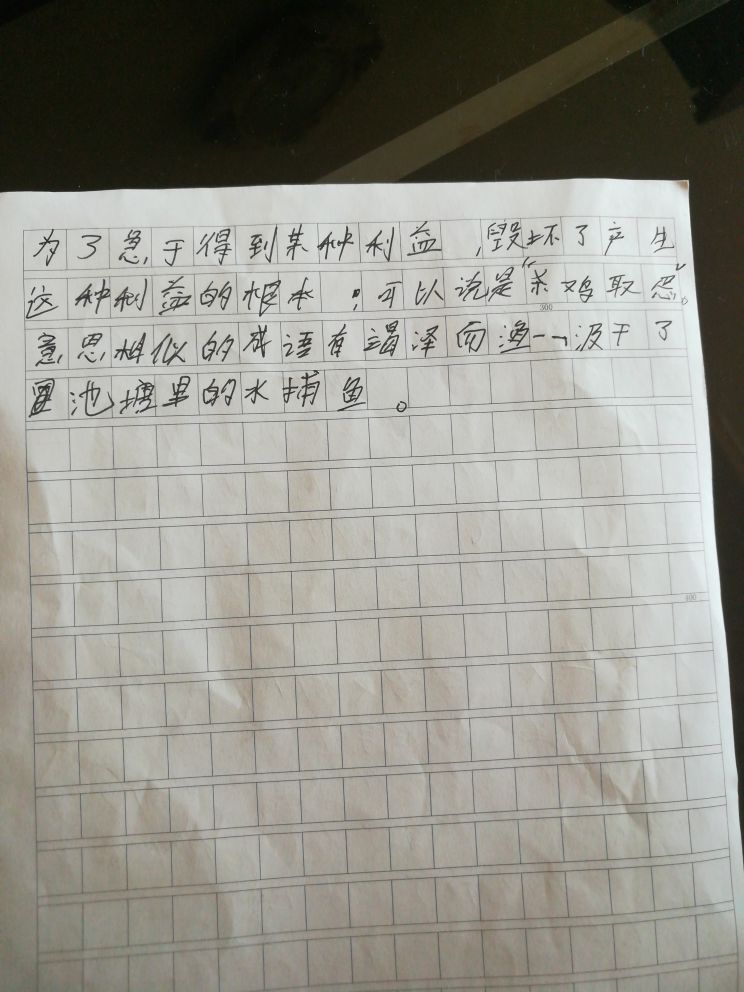 为了急于得到某种利益,毁坏了产生
这种利益的根本,可以说是“杀鸡取
300
意思相似的成语有竭泽而渔一一汲干了
池塘里的水捕鱼。
400